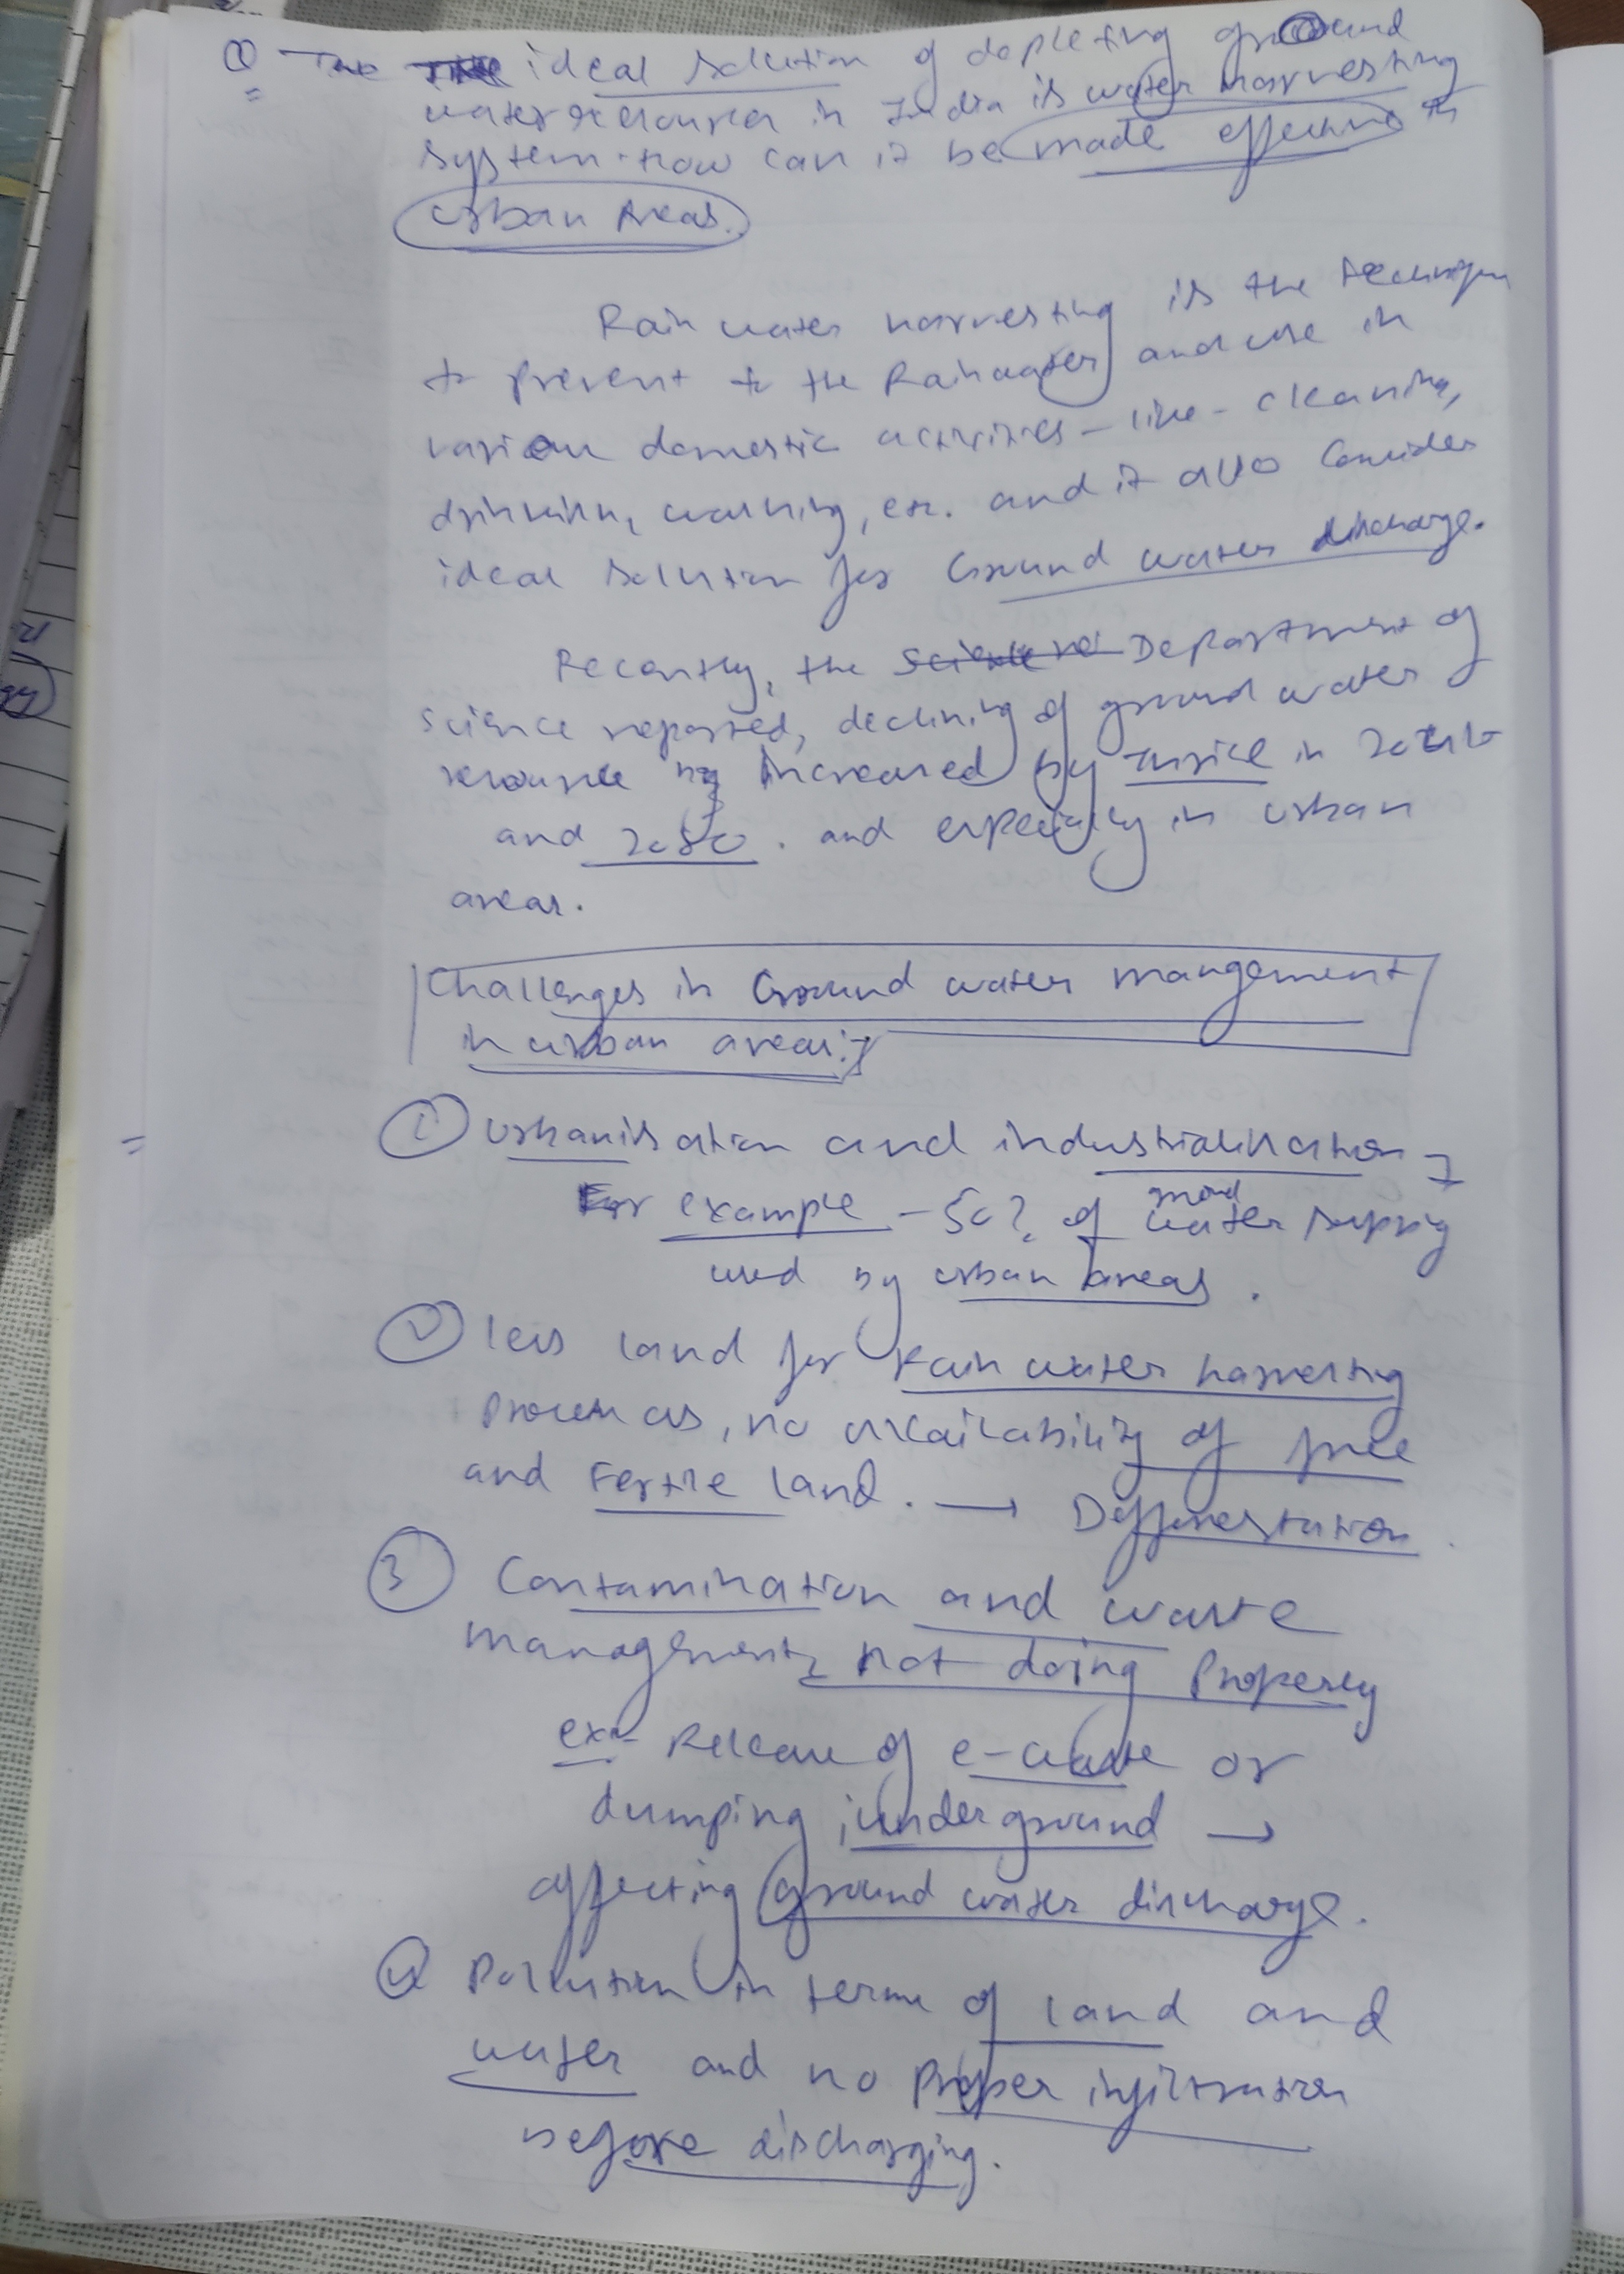 Q The ideal solution of depleting ground
water resources in India is water harvesting
system. How can it be made effective in
urban Areas.
Rain water harvesting is the technique
to prevent to the Rainwater and use in
various domestic activities - like - cleaning,
drinking, washing, etc. and it also consider
ideal solution for Ground water discharge.
Recently, the Department of
science reported, declining of ground water
resource by increased by thrice in
and 2080. and especially in urban
areas.
Challenges in Ground water mangement
in urban areas:-
① Urbanisation and industrialisation →
For example - 50% of ground water supply
used by urban areas.
② less land for Rain water harvesting
process as, no availability of free
and Fertile land. → Defforestation.
③ Contamination and waste
management not doing Properly
ex- Release of e-waste or
dumping underground →
affecting ground water discharge.
④ Pollution in terms of land and
water and no proper infiltration
before discharging.